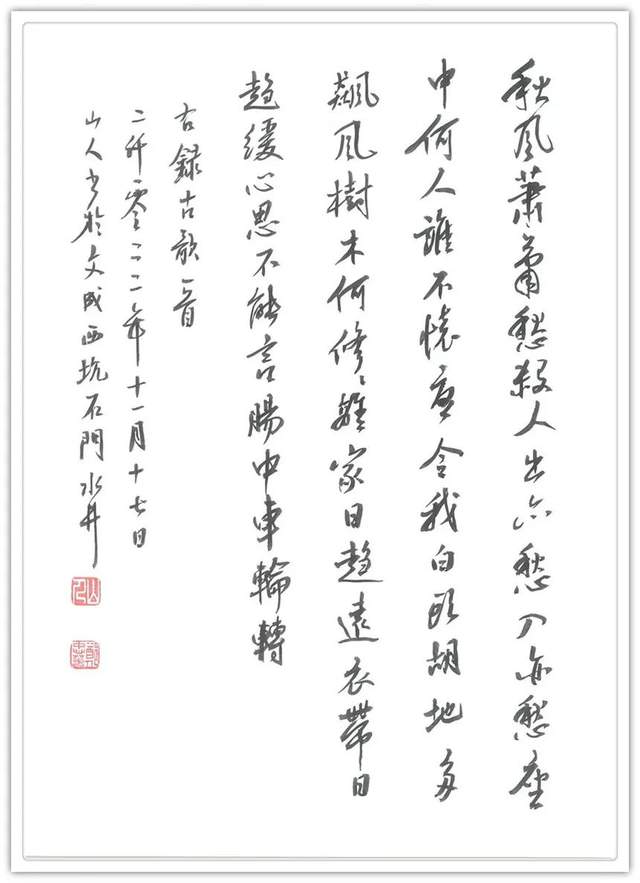 秋風蕭蕭愁殺人出亦愁入亦愁座
中何人誰不懷憂令我白頭胡地多
飆風樹木何修〻離家日趨遠衣帶日
趨緩心思不能言腸中車輪轉
右錄古歌一首
二仟零二二年十一月十七日
山人書於文成西坑石門水井
山人